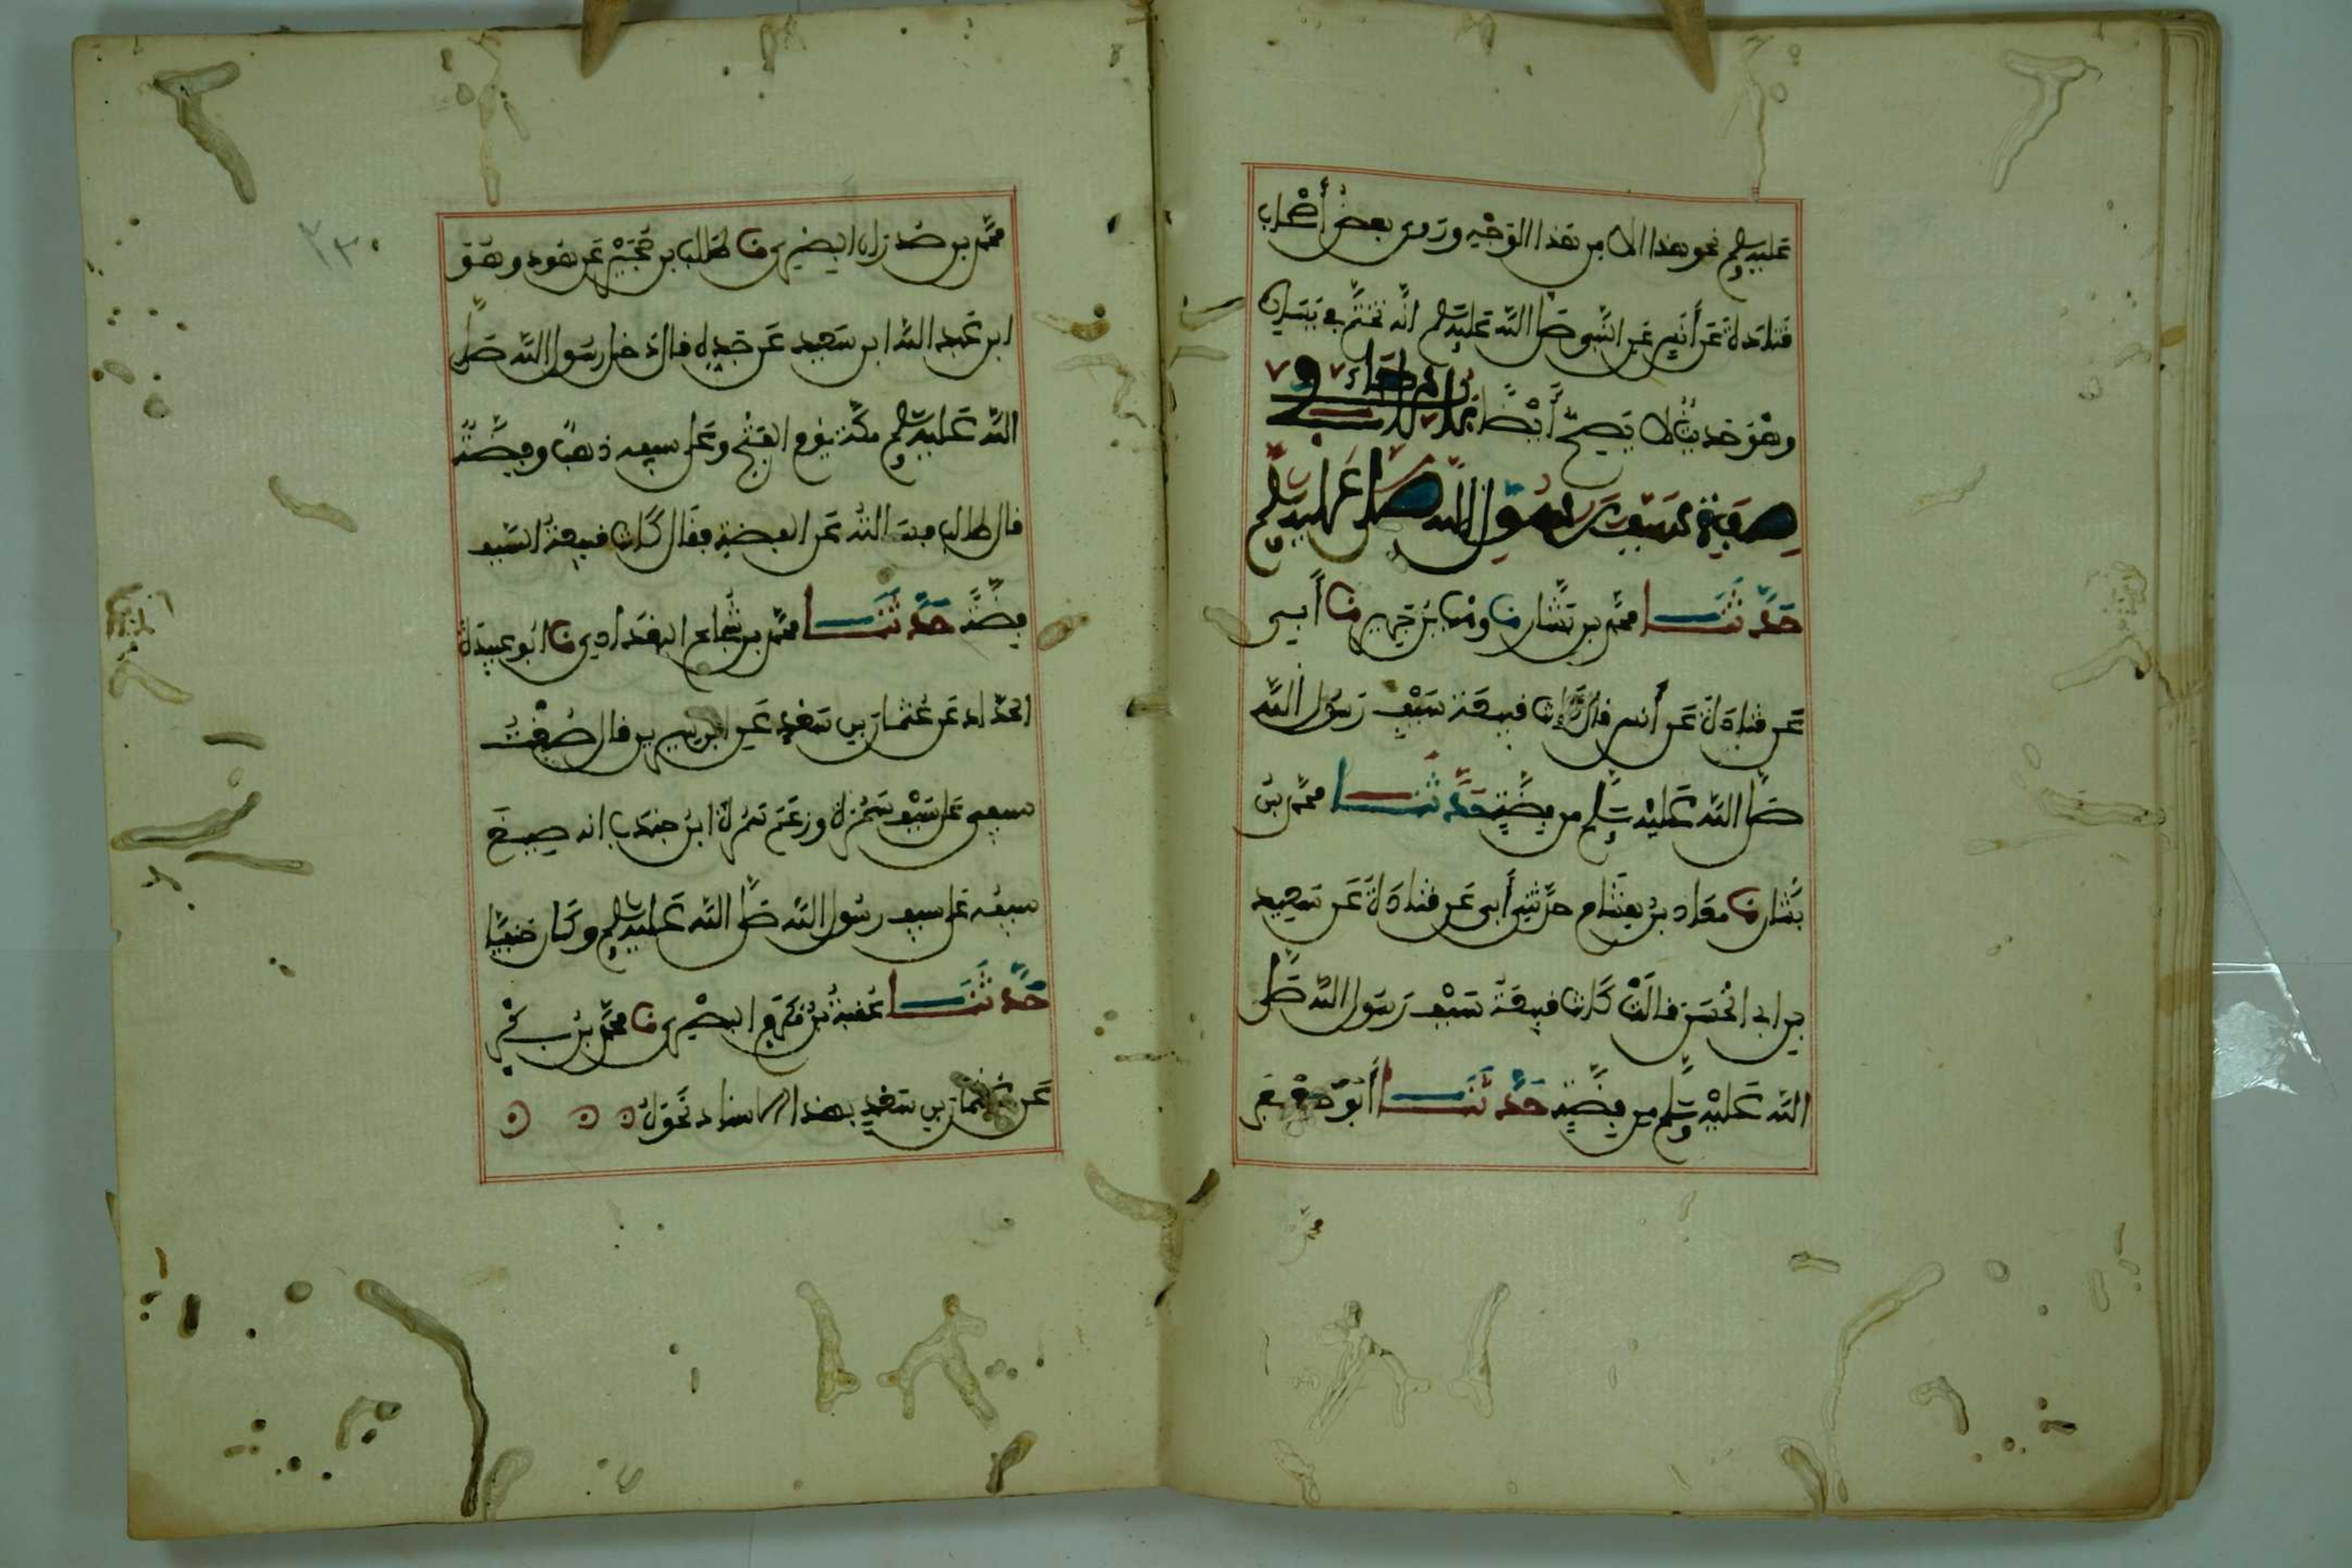 عليه وسلم نحو هذا الا من هذا الوجه وروى بعض أصحاب
قتادة عن أنس عن النبي صلى الله عليه وسلم انه تختم في يساره
وهو حديث لا يصح أيضا باب ما جاء في
صفة سيف رسول الله صلى الله عليه وسلم
حدثنا محمد بن بشار نا وهب بن جرير نا أبي
عن قتادة عن أنس قال كانت قبيعة سيف رسول الله
صلى الله عليه وسلم من فضة حدثنا محمد بن
بشار نا معاذ بن هشام حدثني أبي عن قتادة عن سعيد
بن ابي الحسن قالت كانت قبيعة سيف رسول الله صلى
الله عليه وسلم من فضة حدثنا أبو جعفر
محمد بن صدران البصري نا طالب بن حجير عن هود وهو
ابن عبد الله ابن سعيد عن جده قال دخل رسول الله صلى
الله عليه وسلم مكة يوم الفتح وعلى سيفه ذهب وفضة
قال طالب فسالته عن الفضة فقال كانت قبيعة السيف
فضة حدثنا محمد بن شجاع البغدادي نا ابو عبيدة
الحداد عن عثمان بن سعد عن ابن سيرين قال صنعت
سيفي على سيف سمرة وزعم سمرة ابن جندب انه صنع
سيفه على سيف رسول الله صلى الله عليه وسلم وكان حنفيا
حدثنا عقبة بن مكرم البصري نا محمد بن بكر
عن عثمان بن سعد بهذا الاسناد نحوه
٢٣٠